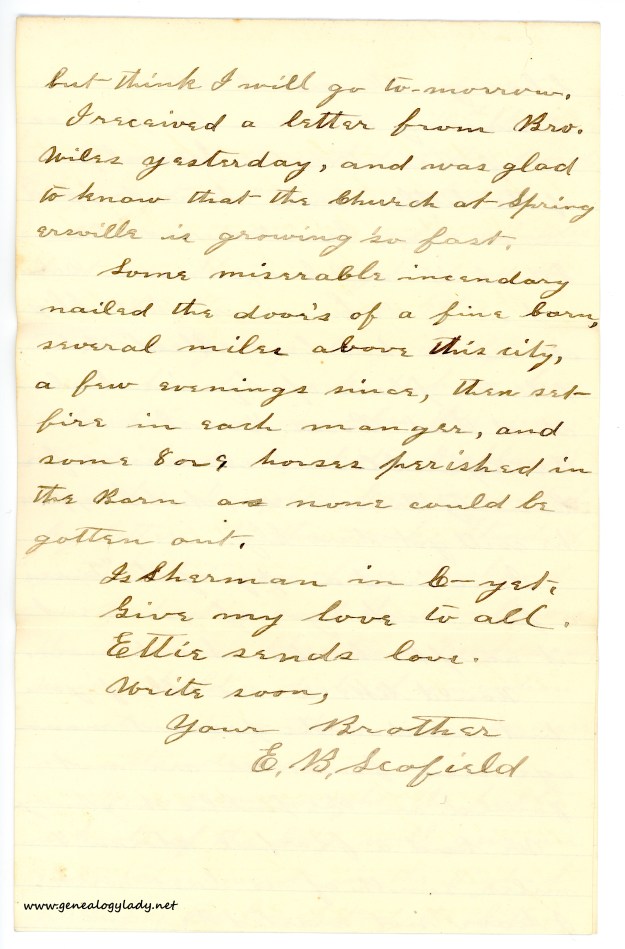 but think I will go to-morrow.
I received a letter from Bro.
Wiles yesterday, and was glad
to know that the Church at Spring
ersville is growing so fast.
Some miserable incendary
nailed the door's of a fine barn,
several miles above this city,
a few evenings since, then set
fire in each manger, and
some 8 or 9 horses perished in
the Barn as none could be
gotten out.
Is Sherman in C- yet.
Give my love to all.
Ettie sends love.
Write soon,
Your Brother
E. B. Scofield
www.genealogylady.net